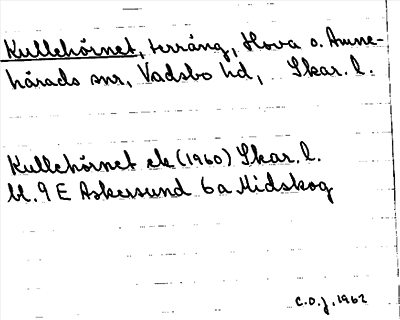 Kullehörnet, terräng, Hova o. Amne-
härads snr, Vadsbo hd, Skar. l.
Kullehörnet ek (1960) Skar. l.
bl. 9 E Askersund 6a Midskog
C.O.J. 1962